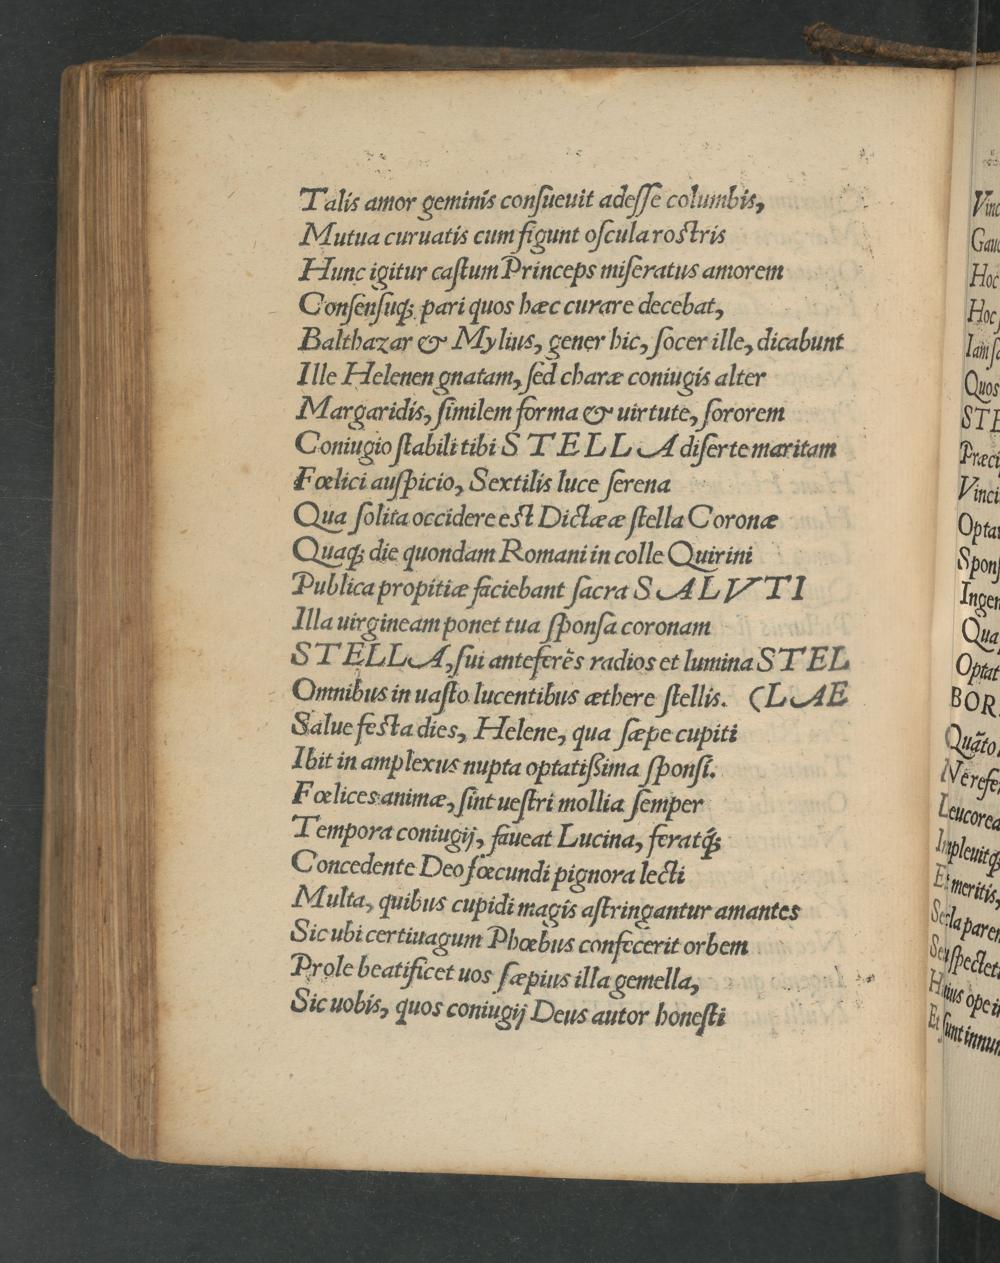 Talis amor geminis conſueuit adeſſe columbis,
Mutua curuatis cum figunt oſcula roſtris
Hunc igitur caſtum Princeps miſeratus amorem
Conſenſuq́; pari quos hæc curare decebat,
Balthazar & Mylius, gener hic, ſocer ille, dicabunt
Ille Helenen gnatam, ſed charæ coniugis alter
Margaridis, ſimilem forma & uirtute, ſororem
Coniugio ſtabili tibi STELLA diſerte maritam
Fœlici auſpicio, Sextilis luce ſerena
Qua ſolita occidere eſt Dictææ ſtella Coronæ
Quaq́; die quondam Romani in colle Quirini
Publica propitiæ faciebant ſacra SALVTI
Illa uirgineam ponet tua ſponſa coronam
STELLA, ſui anteferēs radios et lumina STEL
Omnibus in uaſto lucentibus æthere ſtellis. (LAE
Salue feſta dies, Helene, qua ſæpe cupiti
Ibit in amplexus nupta optatißima ſponſi.
Fœlices animæ, ſint ueſtri mollia ſemper
Tempora coniugij, faueat Lucina, feratq́;
Concedente Deo fœcundi pignora lecti
Multa, quibus cupidi magis aſtringantur amantes
Sic ubi certiuagum Phœbus confecerit orbem
Prole beatificet uos ſæpius illa gemella,
Sic uobis, quos coniugij Deus autor honeſti
Vinc
Gau
Hoc
Hoc
Iam
Quos
STE
Præci
Vinci
Opta
Sponſ
Ingen
Qua
Optat
BOR
Quāto
Ne refe
Leucorea
Impleuitq́;
Et meritis,
Secla paren
Seu ſpectet
Huius ope i
Et ſunt innum